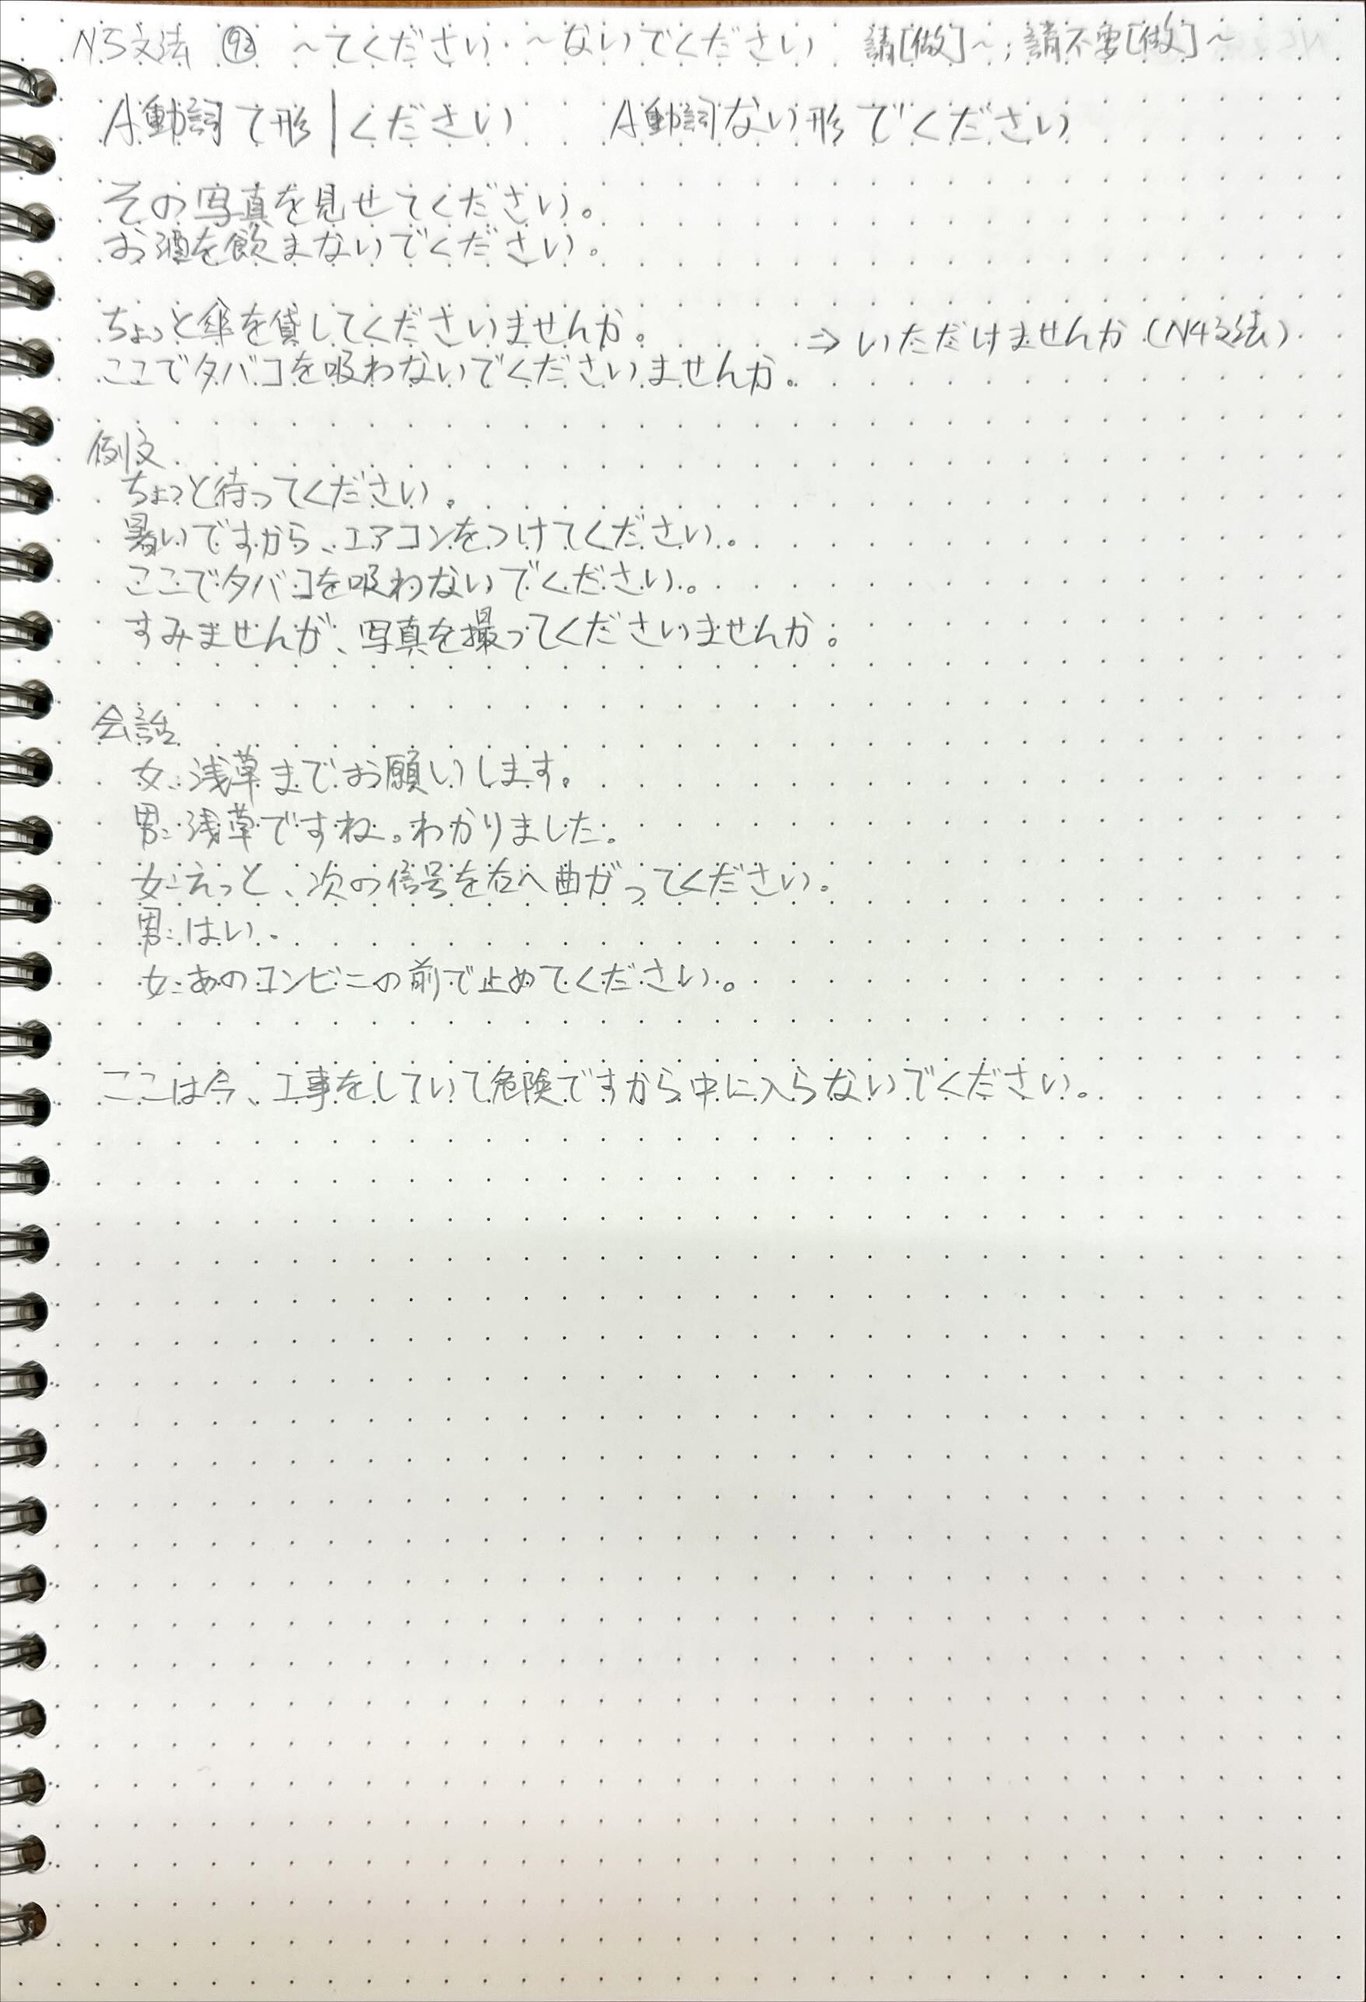 N5文法 ㉒ ～てください・～ないでください 請[做]～；請不要[做]～
A動詞て形|ください A動詞ない形でください
その写真を見せてください。
お酒を飲まないでください。
ちょっと傘を貸してくださいませんか。 ⇒いただけませんか（N4文法）
ここでタバコを吸わないでくださいませんか。
例文
ちょっと待ってください。
暑いですから、エアコンをつけてください。
ここでタバコを吸わないでください。
すみませんが、写真を撮ってくださいませんか。
会話
女:浅草までお願いします。
男:浅草ですね。わかりました。
女:えっと、次の信号を右へ曲がってください。
男:はい。
女:あのコンビニの前で止めてください。
ここは今、工事をしていて危険ですから中に入らないでください。